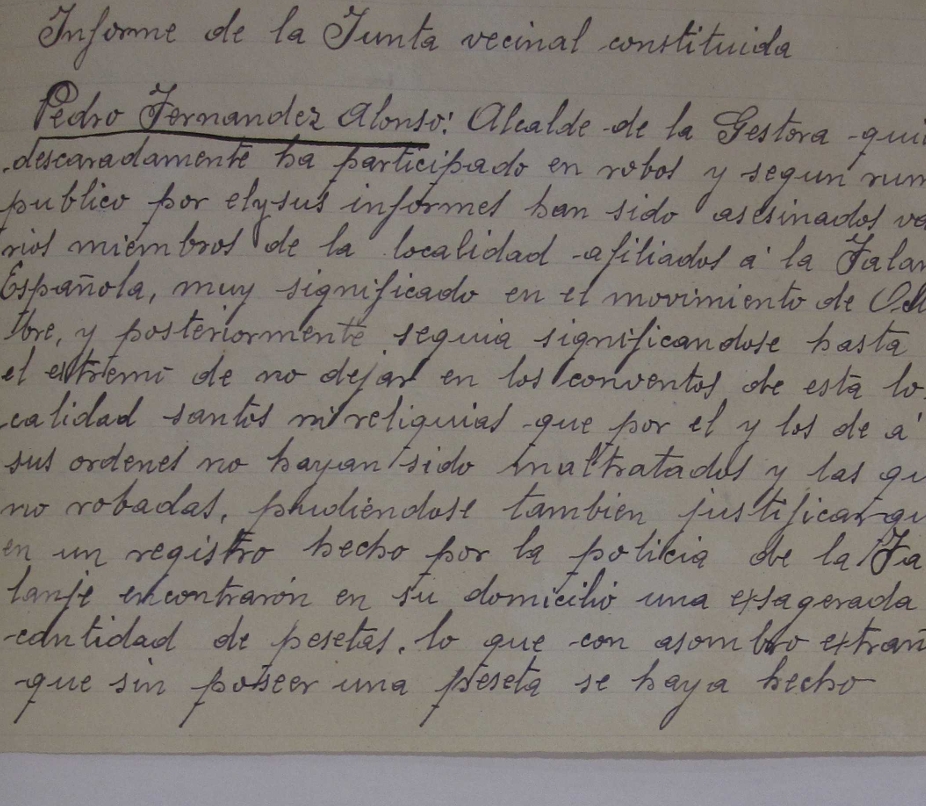 Informe de la Junta vecinal constituida
Pedro Fernandez Alonso: Alcalde de la Gestora qui
descaradamente ha participado en robos y segun rum
publico por el y sus informes han sido asesinados va
rios miembros de la localidad afiliados á la Falan
Española, muy significado en el movimiento de Octu
bre, y posteriormente seguia significandose hasta
el extremo de no dejar en los conventos de esta lo-
calidad santos ni reliquias que por el y los de á
sus ordenes no hayan sido maltratados y las qu
no robadas, pudiendose tambien justificar qu
en un registro hecho por la policia de la Fa
lanje encontrarón en su domicilio una exsagerada
cantidad de pesetas. lo que con asombro extrañ
que sin poseer una peseta se haya hecho